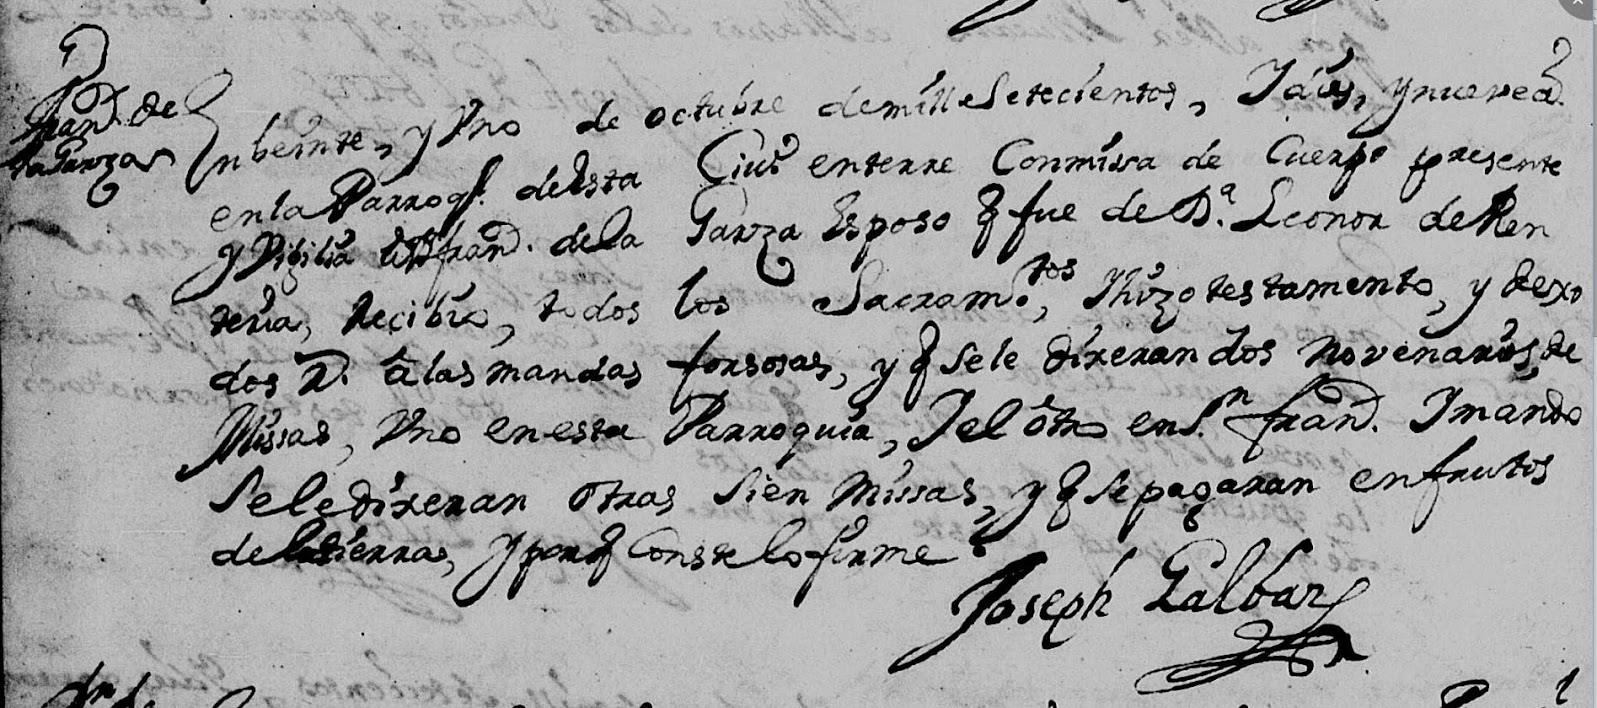 D
Fran.co de
la Garza
En beinte, y Vno de octubre de mill e setecientos, Y dies, y nueve a.s
en la Parroq.l de esta Ciud enterre Con missa de Cuerpo presente
y Vigilia a D fran.co de la Garza Esposo q fue de D.a Leonor de Ren
teria, Recibio, todos los Sacram.tos, Y hizo testamento, y dexo
dos R.s a las mandas forsosas, y q se le dixeran dos novenarios, de
Missas, Vno en esta Parroquia, Y el otro en S.n fran.co Y mando
Se le dixeran otras Sien Missas, y q se pagaran en frutos
de la tierra, y porq Conste lo firme
Joseph Galban